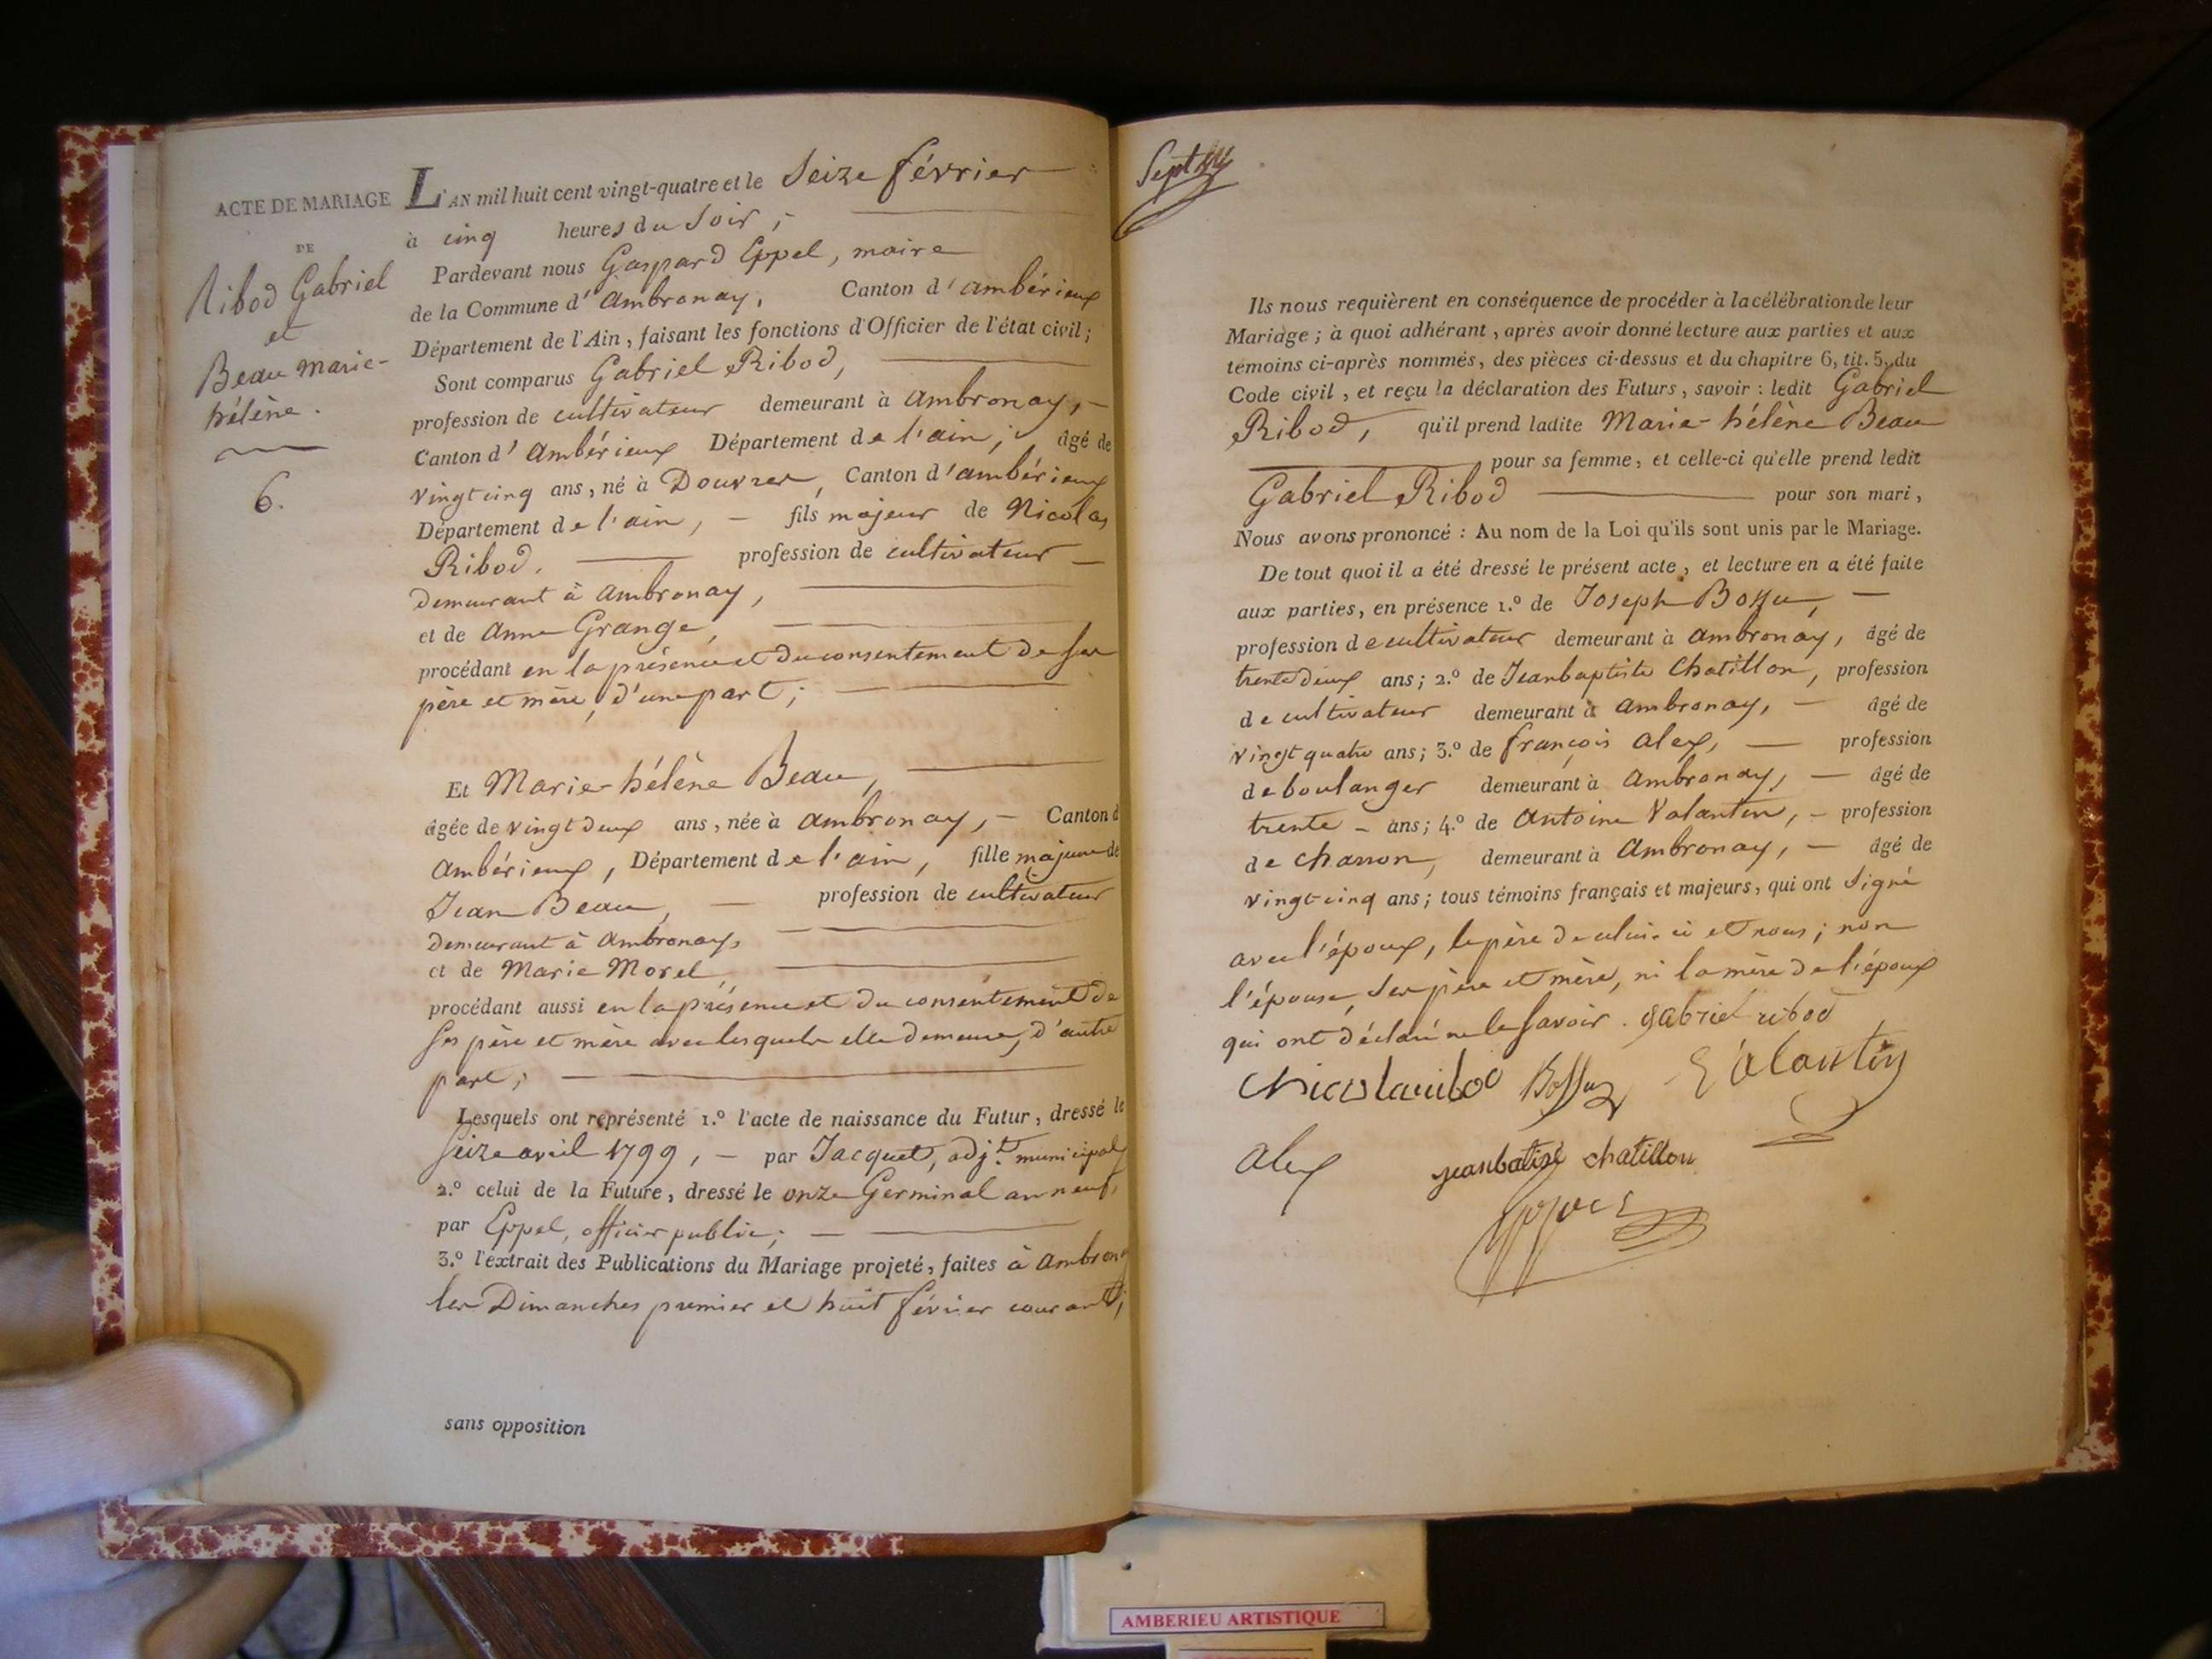 ACTE DE MARIAGE
DE
Ribod Gabriel
et
Beau marie-
hélène.
6.
L'AN mil huit cent vingt-quatre et le Seize février
à cinq heures du Soir ;
Pardevant nous Gaspard Eppel, maire
de la Commune d' Ambronay, Canton d' ambérieux
Département de l'Ain, faisant les fonctions d'Officier de l'état civil ;
Sont comparus Gabriel Ribod,
profession de cultivateur demeurant à Ambronay, -
Canton d' Ambérieux Département de l'ain ; âgé de
vingt cinq ans, né à Douvres, Canton d'ambérieux
Département de l'ain, - fils majeur de Nicolas
Ribod. profession de cultivateur -
demeurant à ambronay,
et de anne Grange,
procédant en la présence et du consentement de ses
père et mère, d'une part ;
Et Marie-hélène Beau,
âgée de vingt deux ans, née à ambronay, - Canton d
Ambérieux, Département de l'ain, fille majeure de
Jean Beau, - profession de cultivateur
demeurant à Ambronay,
et de Marie Morel,
procédant aussi en la présence et du consentement de
ses père et mère avec lesquels elle demeure, d'autre
part ;
Lesquels ont représenté 1.º l'acte de naissance du Futur, dressé le
Seize avril 1799, - par Jacquet, adj.t municipal
2.º celui de la Future, dressé le onze Germinal an neuf,
par Eppel, officier public ; -
3.º l'extrait des Publications du Mariage projeté, faites à Ambron
les Dimanches premier et huit février courant ;
sans opposition
Sept
Ils nous requièrent en conséquence de procéder à la célébration de leur
Mariage ; à quoi adhérant, après avoir donné lecture aux parties et aux
témoins ci-après nommés, des pièces ci-dessus et du chapitre 6, tit. 5, du
Code civil, et reçu la déclaration des Futurs, savoir : ledit Gabriel
Ribod, qu'il prend ladite Marie-hélène Beau
pour sa femme, et celle-ci qu'elle prend ledit
Gabriel Ribod pour son mari,
Nous avons prononcé : Au nom de la Loi qu'ils sont unis par le Mariage.
De tout quoi il a été dressé le présent acte, et lecture en a été faite
aux parties, en présence 1.º de Joseph Bossu, -
profession de cultivateur demeurant à ambronay, âgé de
trente deux ans ; 2.º de Jean baptiste Chatillon, profession
de cultivateur demeurant à ambronay, - âgé de
vingt quatre ans ; 3.º de françois alex, - profession
de boulanger demeurant à Ambronay, - âgé de
trente - ans ; 4.º de Antoine Valantin, - profession
de charron, demeurant à Ambronay, - âgé de
vingt-cinq ans ; tous témoins français et majeurs, qui ont Signé
avec l'époux, le père de celui-ci et nous ; non
l'épouse, Ses père et mère, ni la mère de l'époux
qui ont déclaré ne le savoir. gabriel ribod
Bossu Valantin
alex jeanbatise chatillon
AMBERIEU ARTISTIQUE